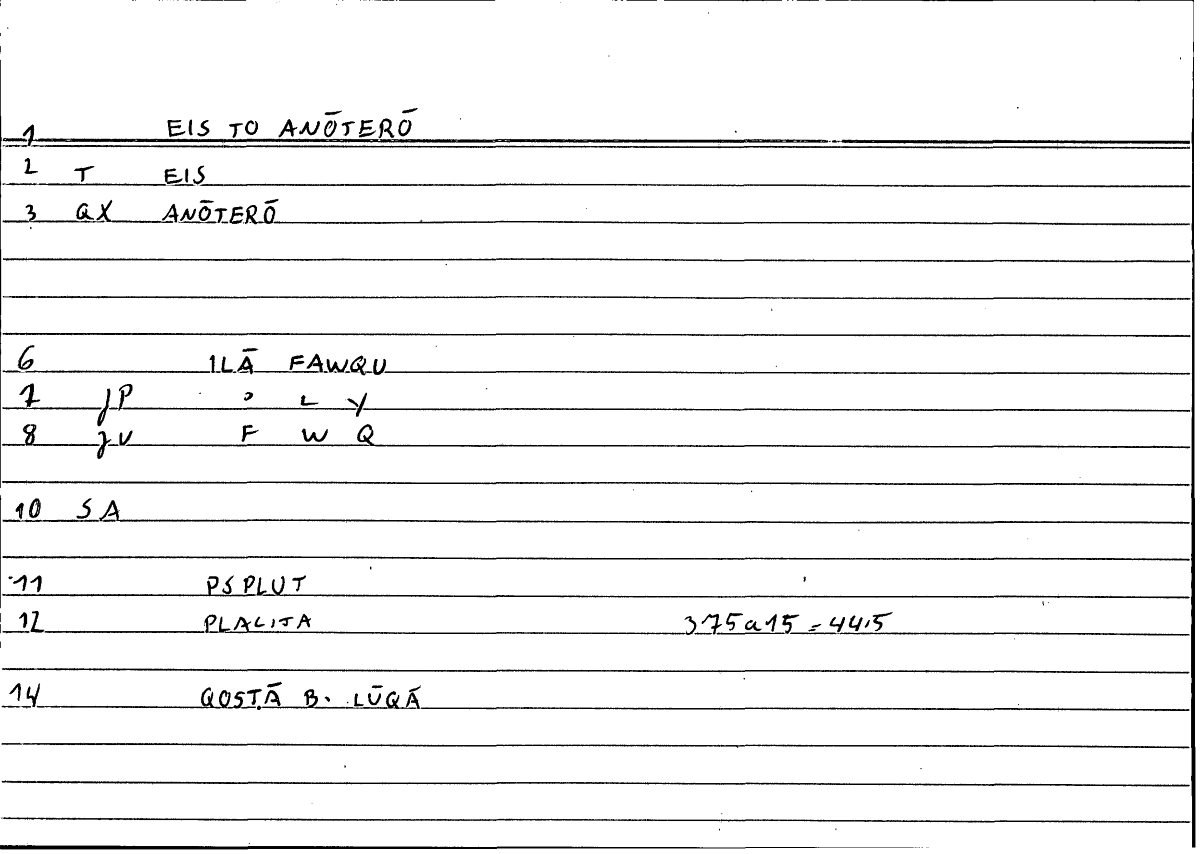 1 EIS TO ANŌTERŌ
2 T EIS
3 QX ANŌTERŌ
6 ILĀ FAWQU
7 JP ʾ L Y
8 JU F W Q
10 SA
11 PSPLUT
12 PLACITA 375a15 = 44.5
14 QOSṬĀ B. LŪQĀ